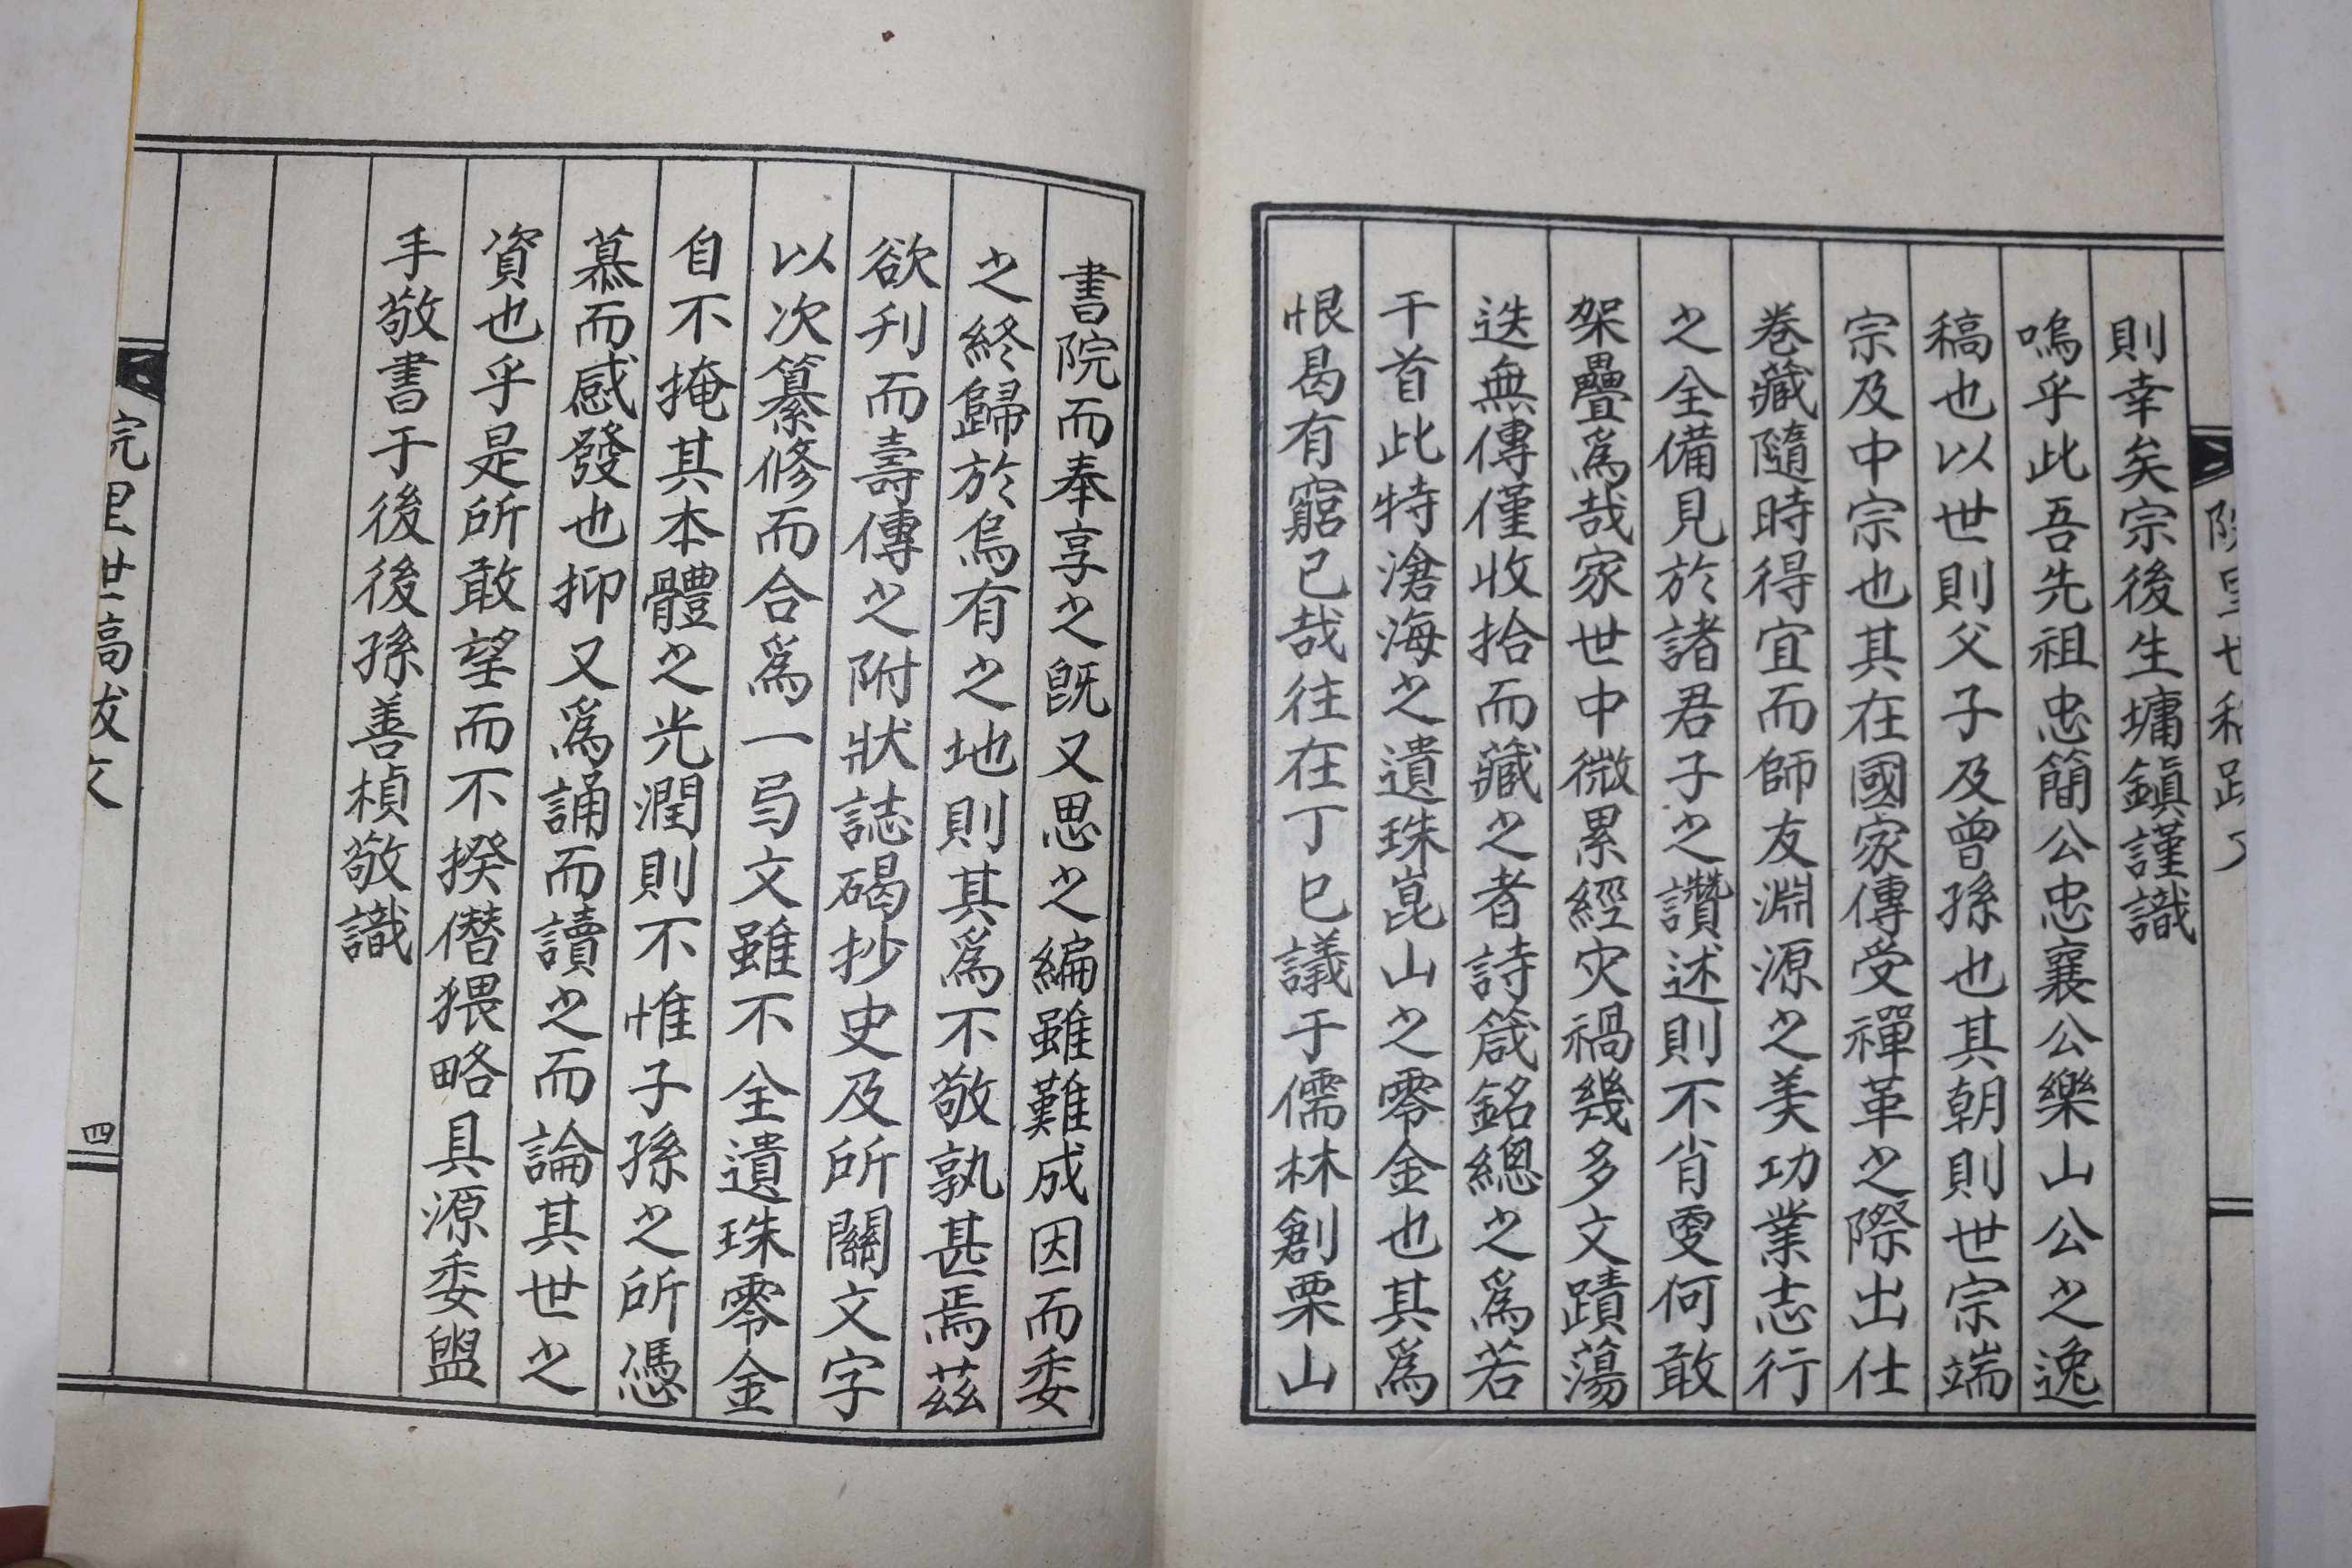 則幸矣宗後生墉鎭謹識
嗚乎此吾先祖忠簡公忠襄公樂山公之逸
稿也以世則父子及曾孫也其朝則世宗端
宗及中宗也其在國家傳受禪革之際出仕
卷藏隨時得宜而師友淵源之美功業志行
之全備見於諸君子之讚述則不肖雯何敢
架疊爲哉家世中微累經灾禍幾多文蹟蕩
迭無傳僅收拾而藏之者詩箴銘總之爲若
干首此特滄海之遺珠崑山之零金也其爲
恨曷有窮已哉往在丁巳議于儒林創栗山
書院而奉享之旣又思之編雖難成因而委
之終歸於烏有之地則其爲不敬孰甚焉茲
欲刋而壽傳之附狀誌碣抄史及所關文字
以次纂修而合爲一弓文雖不全遺珠零金
自不掩其本體之光潤則不惟子孫之所憑
慕而感發也抑又爲誦而讀之而論其世之
資也乎是所敢望而不揆僭猥略具源委盥
手敬書于後後孫善楨敬識
院里世稿跋文
四